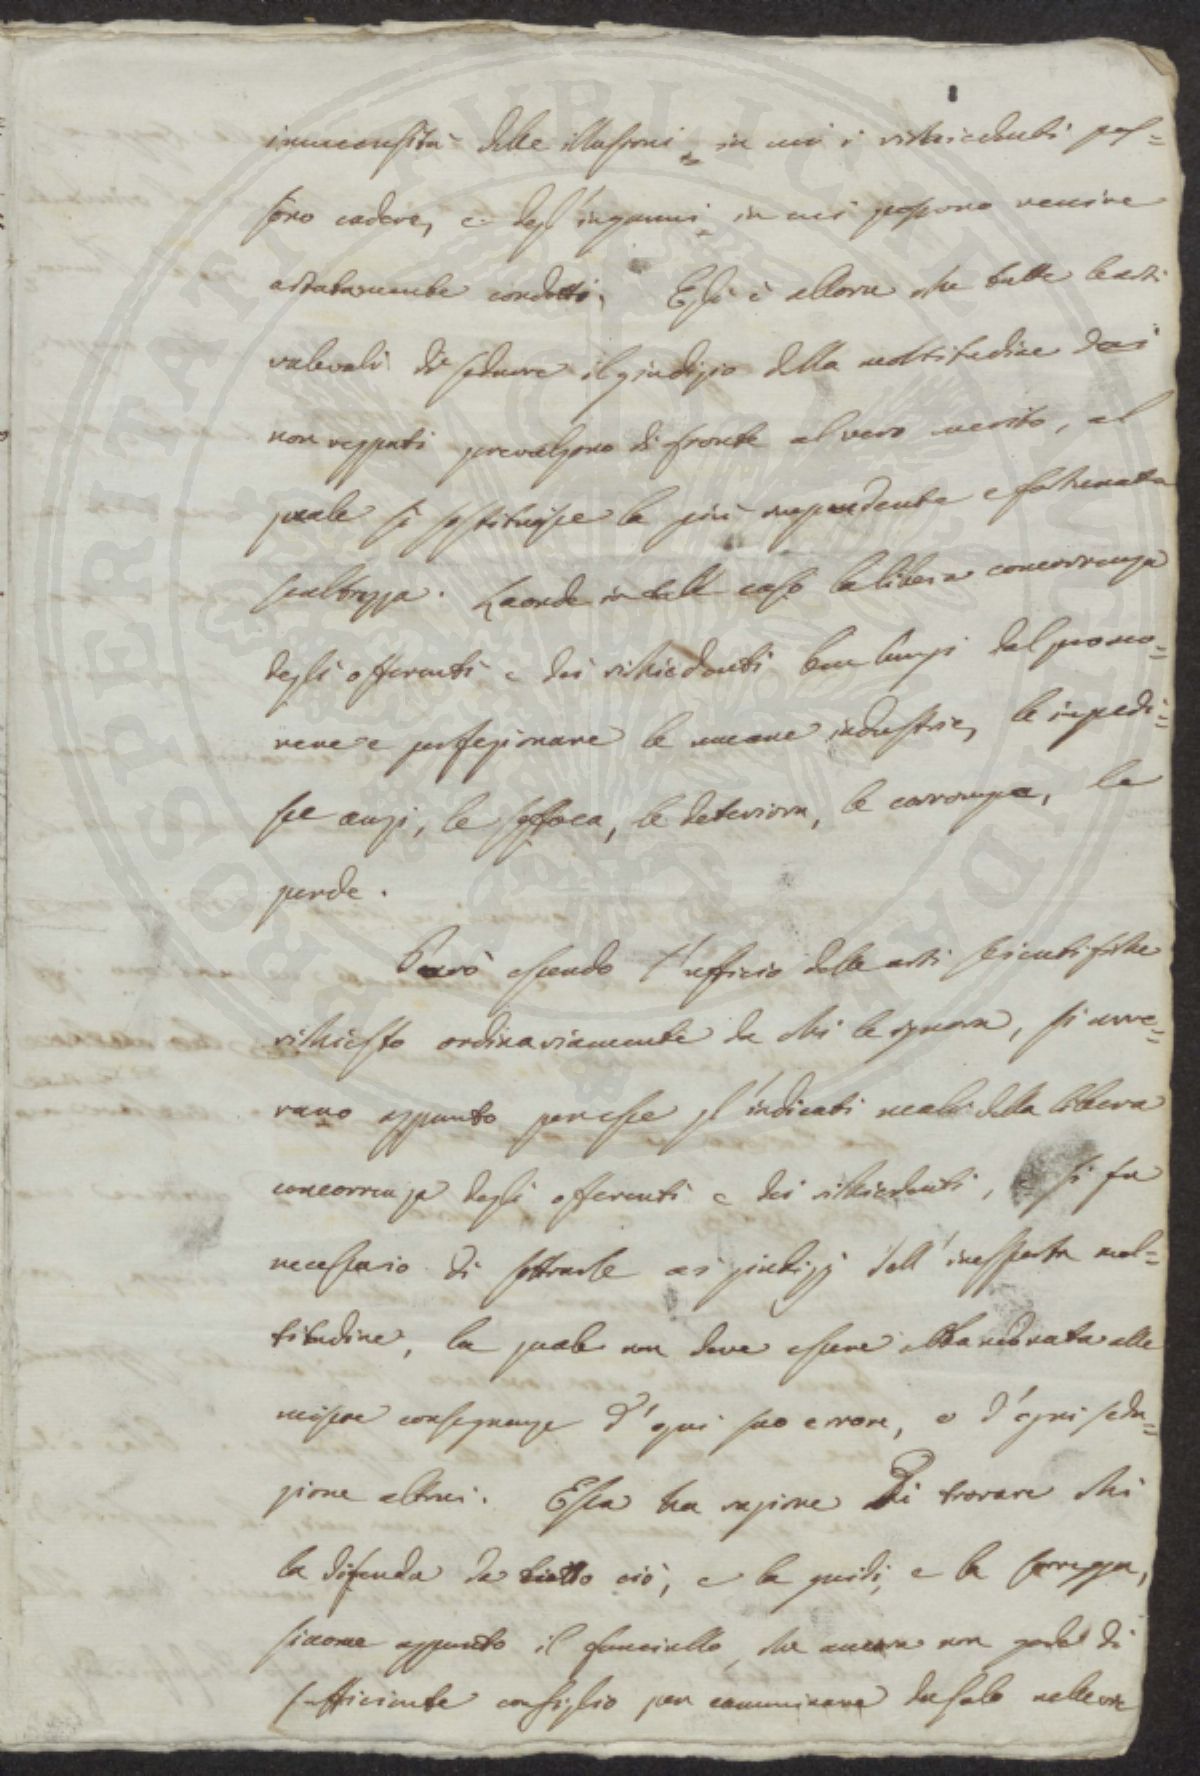 delle illusioni, in cui i richiedenti pos=
sono cadere, e degl'inganni, in cui possono venire
astutamente condotti. Egli è allora che tutte le arti
valevoli di sedurre il giudizio della moltitudine dei
non veggenti prevalgono di fronte al vero merito, al
quale si sostituisce la più impudente e fortunata
scaltrezza. Laonde in tall caso la libera concorrenza
degli offerenti e dei richiedenti ben lungi dal promo=
vere e perfezionare le umane industrie, le impedi=
sce anzi, le soffoca, le deteriora, le corrompe, le
perde.
Però essendo l'ufficio delle arti scientifiche
richiesto ordinariamente da chi le ignora, si avve=
rano appunto per esse gl'indicati mali della libera
concorrenza degli offerenti e dei richiedenti, e si fa
necessario di sottrarle ai giudizj dell'inesperta mol=
titudine, la quale non deve essere abbandonata alle
misere conseguenze d'ogni suo errore, o d'ogni sedu=
zione altrui. Essa ha ragione di trovare chi
la difenda da tutto ciò, e la guidi, e la sorregga,
siccome appunto il fanciullo, che ancora non gode di
sufficiente consiglio per camminare da solo nelle vie
PROSPERITATI PUBLICAE AUGENDAE